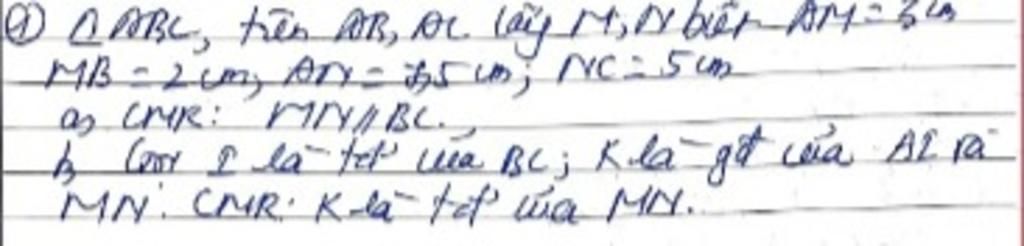 ① △ABC, trên AB, AC lấy M, N biết AM = 3 cm
MB = 2 cm, AN = 7,5 cm; NC = 5 cm
a, CMR: MN // BC.
b, Gọi I là tđ' của BC; K là gđ của AI và
MN. CMR: K là tđ' của MN.